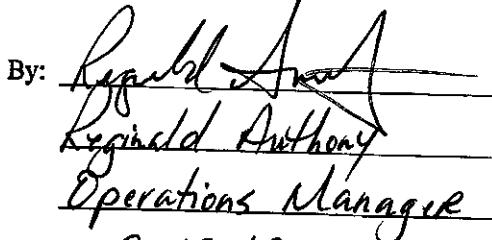 By: Reginald Anthony
Reginald Anthony
Operations Manager